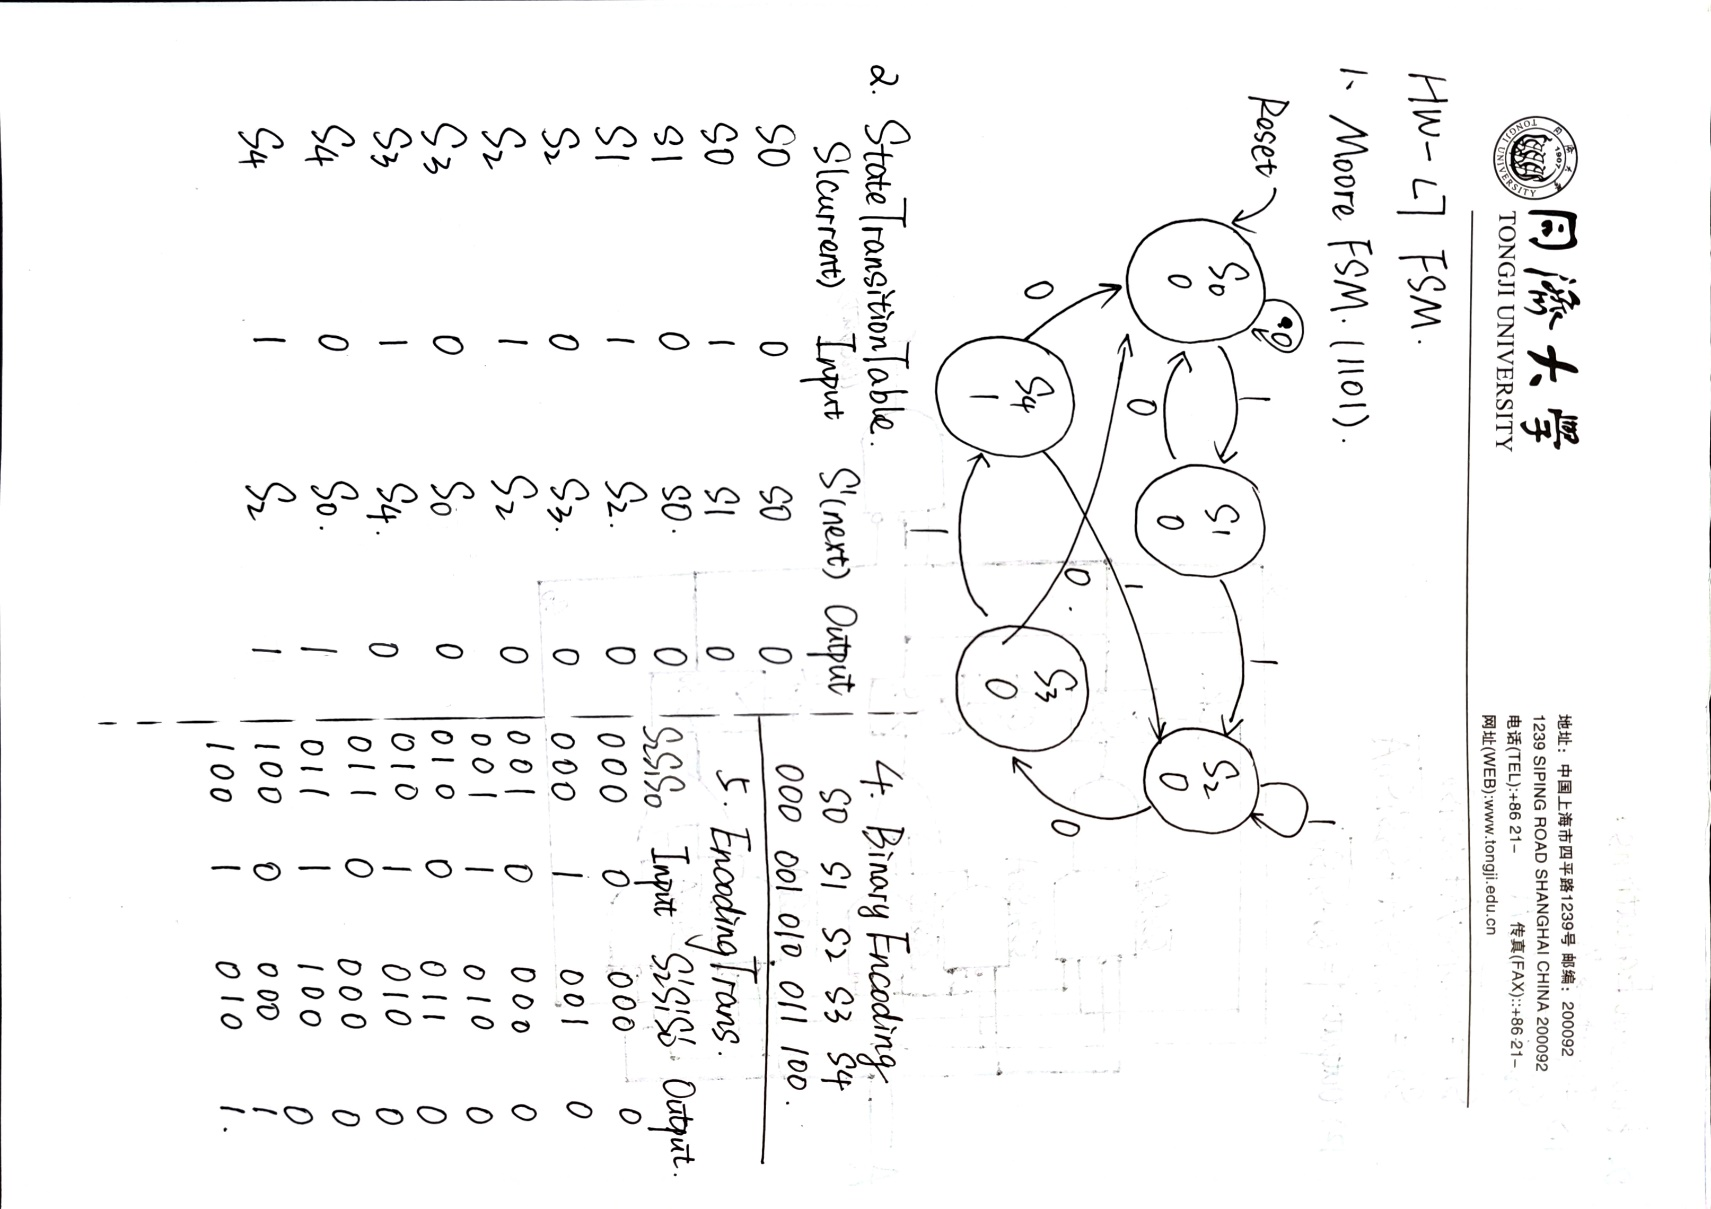 同济大学
TONGJI UNIVERSITY
地址：中国上海市四平路1239号 邮编：200092
1239 SIPING ROAD SHANGHAI CHINA 200092
电话(TEL):+86 21- 传真(FAX)::+86-21-
网址(WEB):www.tongji.edu.cn
HW-L7 FSM.
1、Moore FSM. (1101).
Reset
S0
0
0
1
0
S1
0
1
S2
0
1
0
S4
1
0
1
0.
1
S3
0
2. State Transition Table.
S(current) Input S'(next) Output
S0 0 S0 0
S0 1 S1 0
S1 0 S0. 0
S1 1 S2. 0
S2 0 S3. 0
S2 1 S2 0
S3 0 S0 0
S3 1 S4. 0
S4 0 S0. 1
S4 1 S2 1
4. Binary Encoding
S0 S1 S2 S3 S4
000 001 010 011 100.
5. Encoding Trans.
S2S1S0 Input S2'S1'S0' Output.
000 0 000 0
000 1 001 0
001 0 000 0
001 1 010 0
010 0 011 0
010 1 010 0
011 0 000 0
011 1 100 0
100 0 000 1
100 1 010 1.